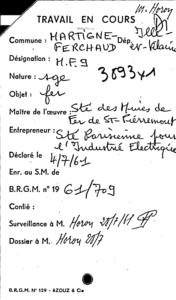 M. Horoy
TRAVAIL EN COURS
Commune : MARTIGNE- Dép.
FERCHAUD et-Vilaine
Désignation : H.F9
Nature : sge 309341
Objet : fer
Maître de l'œuvre : Sté des Mines de
Fer de St-Pierremont
Entrepreneur : Sté Parisienne pour
l'Industrie Electrique
Déclaré le 4/7/61
Enr. au S.M. de
B.R.G.M. n° 19 61/709
Confié :
Surveillance à M. Horoy 28/7/61
Dossier à M. Horoy 28/7
B.R.G.M. N° 129 - AZOUZ & Cie